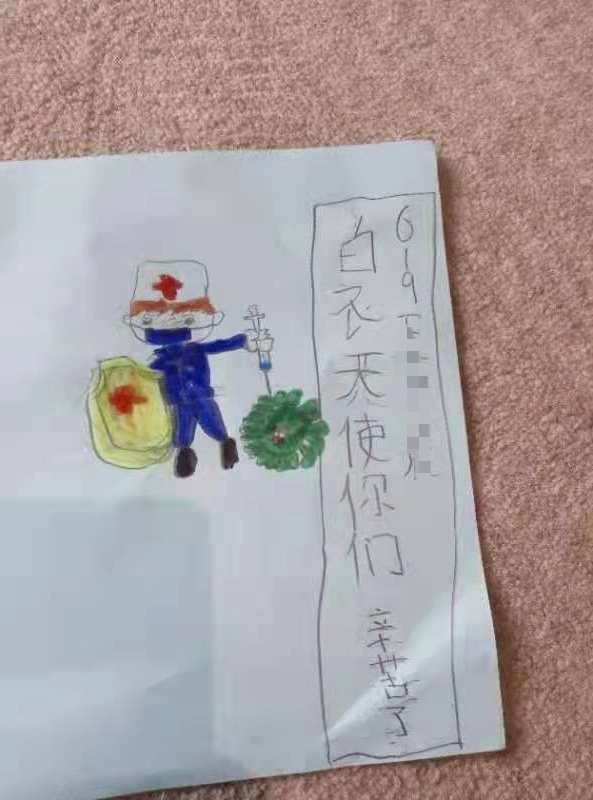 619下
白衣天使你们
辛苦了